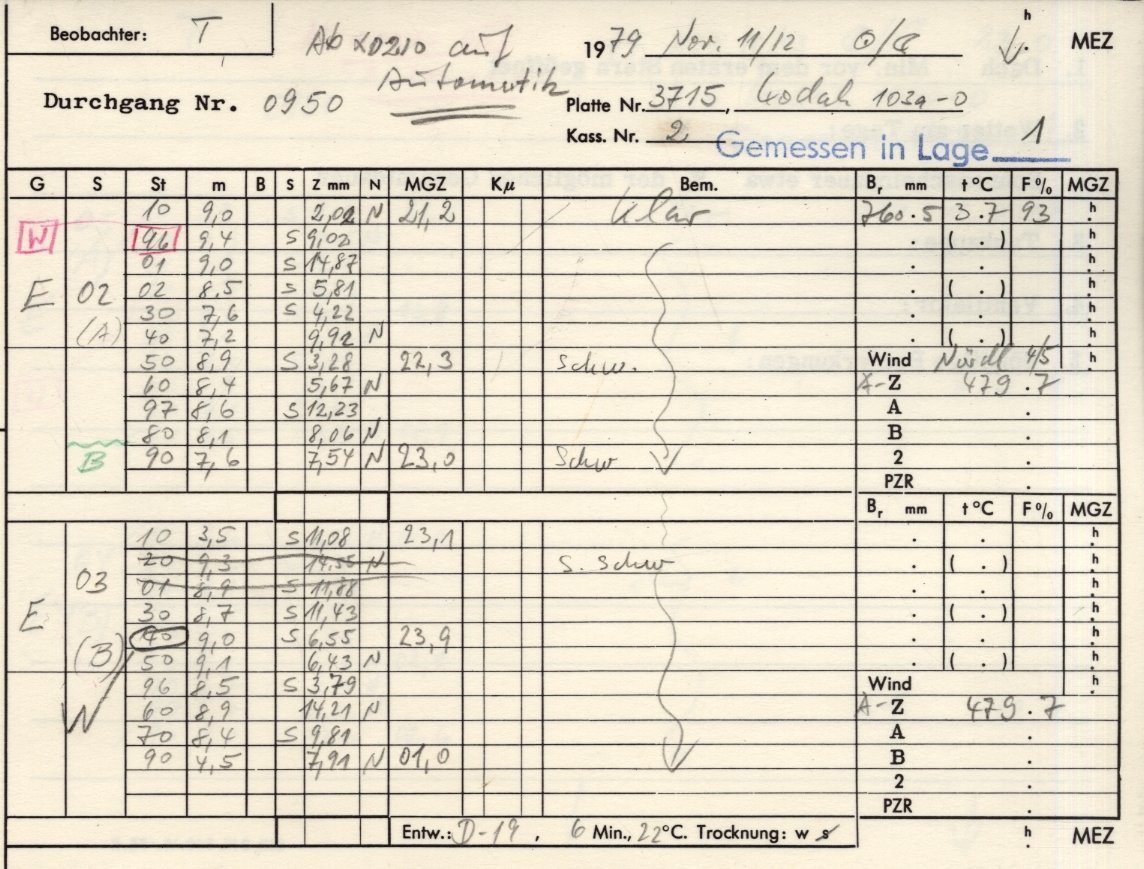 Beobachter: T
Ab x0210 auf
Automatik
1979 Nov. 11/12 h MEZ
Durchgang Nr. 0950
Platte Nr. 3715, Kodak 103a-O
Kass. Nr. 2 Gemessen in Lage 1
G S St m B S Z mm N MGZ Kμ Bem. Br mm t°C F% MGZ
10 9,0 2,02 N 21,2 klar 760.5 3.7 93 h
W 96 9,4 S 9,02 . ( . ) h
01 9,0 S 14,87 . . h
E 02 02 8,5 S 5,81 . ( . ) h
30 7,6 S 4,22 . . h
(A) 40 7,2 9,92 N . ( . ) h
50 8,9 S 3,28 22,3 Schw. Wind Nördl 4/5 h
60 8,4 5,67 N A-Z 479.7
97 8,6 S 12,23 A .
80 8,1 8,06 N B .
B 90 7,6 7,54 N 23,0 Schw 2 .
PZR .
Br mm t°C F% MGZ
10 3,5 S 11,08 23,1 . . h
20 9,3 14,55 N S. Schw . ( . ) h
03 01 8,9 S 11,88 . . h
E 30 8,7 S 11,43 . ( . ) h
40 9,0 S 6,55 23,9 . . h
(B) 50 9,1 6,43 N . ( . ) h
96 8,5 S 3,79 Wind h
60 8,9 14,21 N A-Z 479.7
70 8,4 S 9,81 A .
90 4,5 7,91 N 01,0 B .
2 .
PZR .
Entw.: D-19, 6 Min., 22°C. Trocknung: w s h MEZ